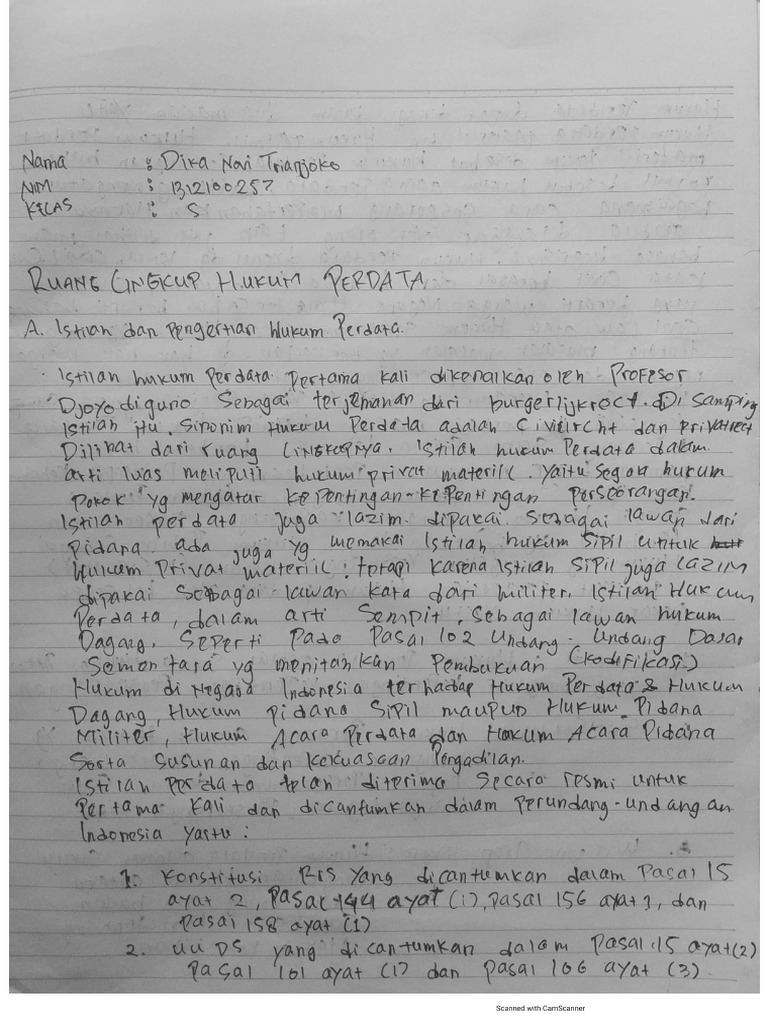 Nama : Dika Nari Trianjoko
NIM : 1312100257
KELAS : S
RUANG LINGKUP HUKUM PERDATA
A. Istilah dan Pengertian Hukum Perdata.
Istilah hukum Perdata Pertama kali dikenalkan oleh Profesor
Djoyodiguno Sebagai terjemahan dari burgerlijkrect. Di Samping
Istilah itu, Sinonim Hukum Perdata adalah Civielrcht dan privatrect
Dilihat dari ruang lingkupnya. Istilah hukum Perdata dalam
arti luas meliputi hukum privat materiil. Yaitu segala hukum
Pokok yg mengatar kepentingan-kepentingan perseorangan.
Istilah perdata juga lazim dipakai Sebagai lawan dari
pidana. ada juga yg memakai Istilah hukum Sipil untuk
Hukum Privat materiil. tetapi karena Istilah Sipil juga lazim
dipakai Sebagai lawan kata dari militer. Istilah Hukum
Perdata, dalam arti Sempit, Sebagai lawan hukum
Dagang. Seperti Pada Pasal 102 Undang-Undang Dasar
Sementara yg menitahkan Pembukuan (Kodifikasi)
Hukum di Negara Indonesia terhadap Hukum Perdata & Hukum
Dagang, Hukum pidana Sipil maupun Hukum Pidana
Militer, Hukum Acara Perdata dan Hukum Acara Pidana
Serta Susunan dan kekuasaan Pengadilan.
Istilah Perdata telah diterima Secara resmi untuk
Pertama kali dan dicantumkan dalam Perundang-undangan
Indonesia yaitu:
1. Konstitusi RIS yang dicantumkan dalam Pasal 15
ayat 2, Pasal 144 ayat (1), Pasal 156 ayat 1, dan
Pasal 158 ayat (1)
2. UU DS yang dicantumkan dalam Pasal 15 ayat(2)
Pasal 101 ayat (1) dan Pasal 106 ayat (3).
Scanned with CamScanner